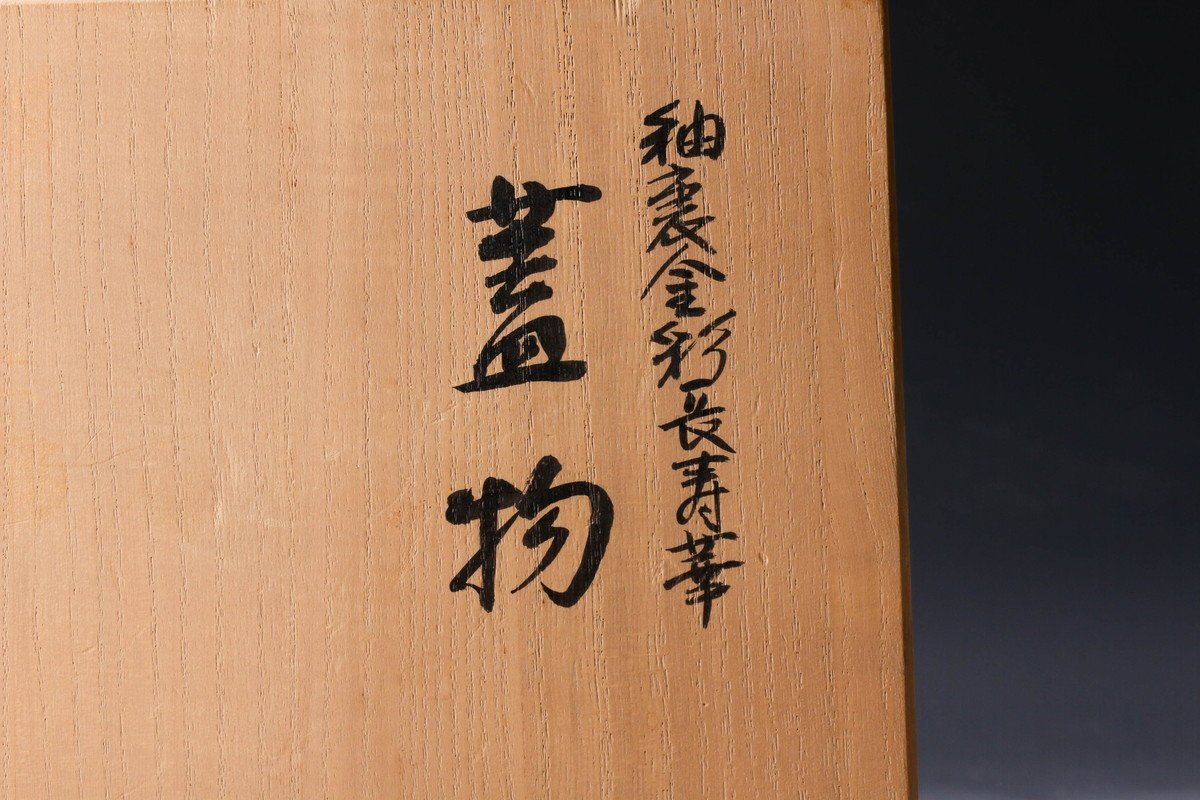 釉裏金彩長寿華
蓋物